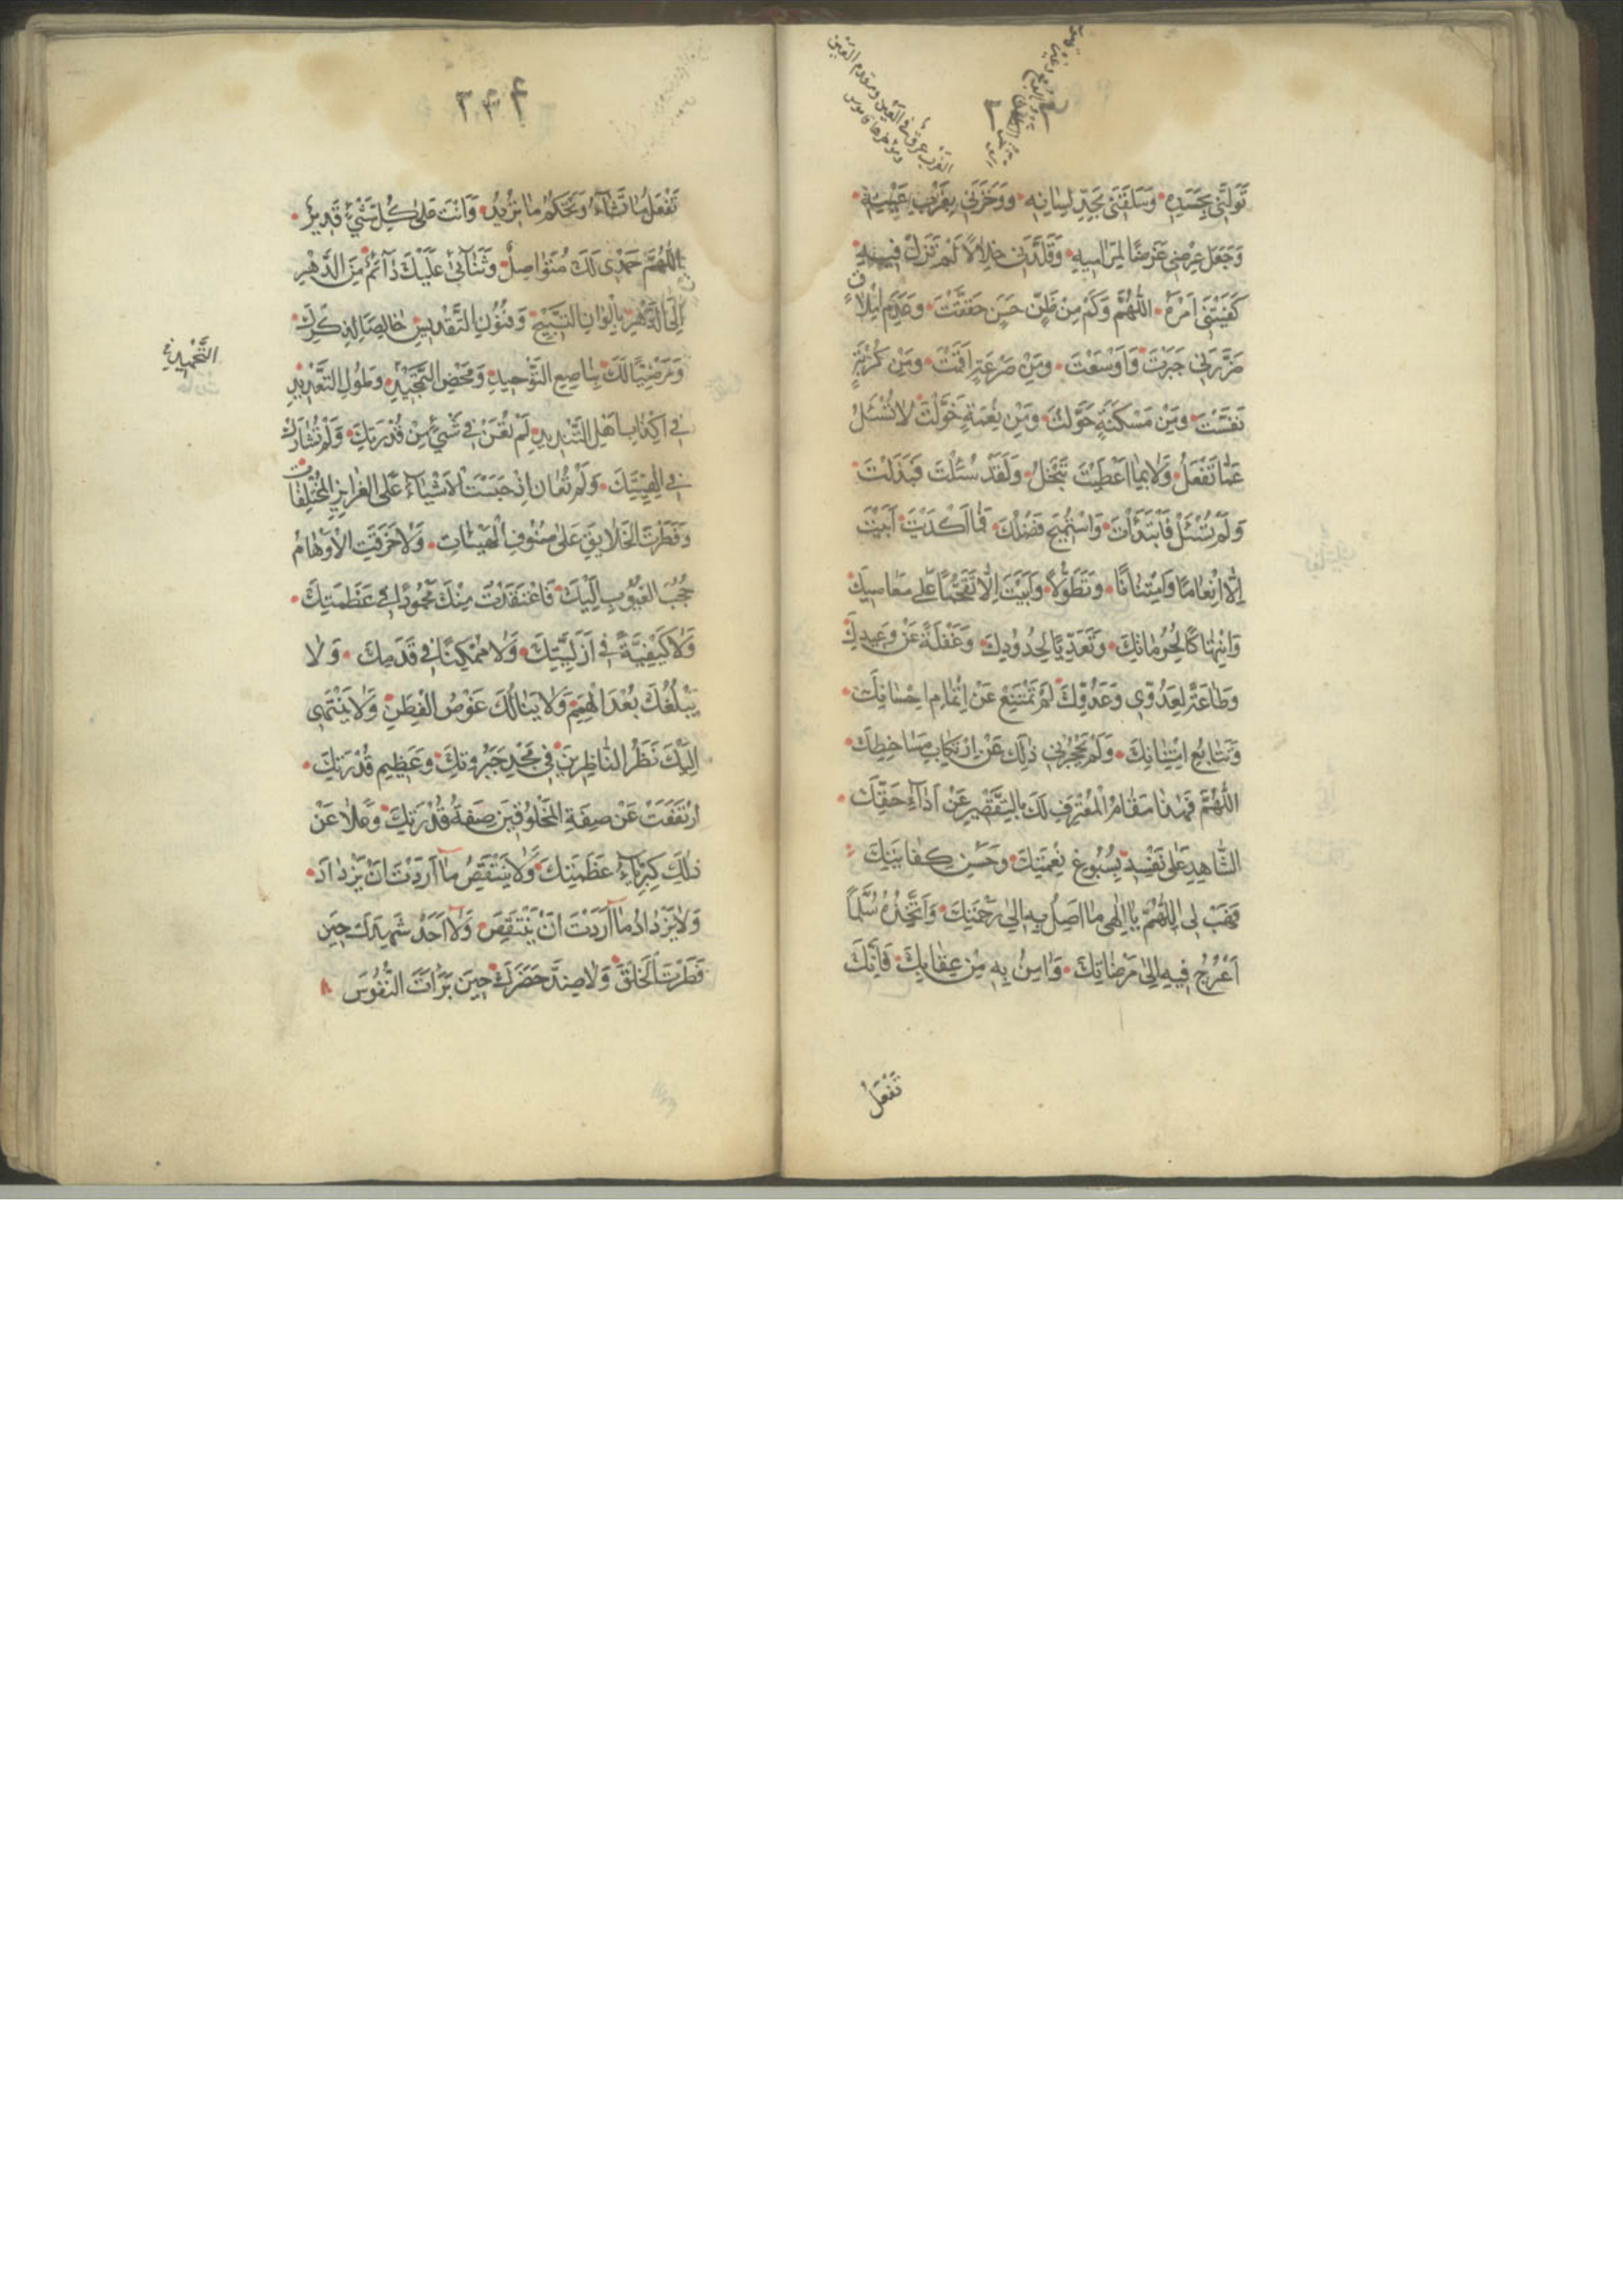 تَوَلَّنِي بِحَسَدِهِ وَسَلَقَنِي بِحَدِّ لِسَانِهِ وَوَخَزَنِي بِغَرْبِ عَيْنِهِ
وَجَعَلَ عِرْضِي غَرَضًا لِمَرَامِيهِ وَقَلَّدَنِي خِلَالًا لَمْ تَزَلْ فِيهِ
كَفَيْتَنِي اَمْرَهُ اللّٰهُمَّ وَكَمْ مِنْ ظَنٍّ حَسَنٍ حَقَّقْتَ وَعَدَمِ اِمْلَاءٍ
ضَرَّنِي جَبَرْتَ وَاَوْسَعْتَ وَمِنْ صَرْعَةٍ اَقَمْتَ وَمِنْ كُرْبَةٍ
نَفَّسْتَ وَمِنْ مَسْكَنَةٍ حَوَّلْتَ وَمِنْ نِعْمَةٍ خَوَّلْتَ لَا تُسْئَلُ
عَمَّا تَفْعَلُ وَلَا بِمَا اَعْطَيْتَ تَبْخَلُ وَلَقَدْ سُئِلْتَ فَبَذَلْتَ
وَلَمْ تُسْئَلْ فَابْتَدَأْتَ وَاسْتُمِيحَ فَضْلُكَ فَمَا اَكْدَيْتَ اَبَيْتَ
اِلَّا اِنْعَامًا وَامْتِنَانًا وَتَطَوُّلًا وَاَبَيْتُ اِلَّا تَقَحُّمًا عَلٰى مَعَاصِيكَ
وَانْتِهَاكًا لِحُرُمَاتِكَ وَتَعَدِّيًا لِحُدُودِكَ وَغَفْلَةً عَنْ وَعِيدِكَ
وَطَاعَةً لِعَدُوِّي وَعَدُوِّكَ لَمْ تَمْتَنِعْ عَنْ اِتْمَامِ اِحْسَانِكَ
وَتَتَابُعِ امْتِنَانِكَ وَلَمْ يَحْجُزْنِي ذٰلِكَ عَنْ ارْتِكَابِ مَسَاخِطِكَ
اللّٰهُمَّ فَهٰذَا مَقَامُ الْمُعْتَرِفِ لَكَ بِالتَّقْصِيرِ عَنْ اَدَاءِ حَقِّكَ
الشَّاهِدِ عَلٰى نَفْسِهِ بِسُبُوغِ نِعْمَتِكَ وَحُسْنِ كِفَايَتِكَ
فَهَبْ لِي اللّٰهُمَّ يَا اِلٰهِي مَا اَصِلُ بِهِ اِلٰى رَحْمَتِكَ وَاَتَّخِذُهُ سُلَّمًا
اَعْرُجُ فِيهِ اِلٰى مَرْضَاتِكَ وَاٰمَنُ بِهِ مِنْ عِقَابِكَ فَاِنَّكَ
تَفْعَلُ
تَفْعَلُ مَا تَشَاءُ وَتَحْكُمُ مَا تُرِيدُ وَاَنْتَ عَلٰى كُلِّ شَيْءٍ قَدِيرٌ
اللّٰهُمَّ حَمْدِي لَكَ مُتَوَاصِلٌ وَثَنَائِي عَلَيْكَ دَائِمٌ مِنَ الدَّهْرِ
اِلَى الدَّهْرِ بِاَلْوَانِ التَّسْبِيحِ وَفُنُونِ التَّقْدِيسِ خَالِصًا لِذِكْرِكَ
وَمَرْضِيًّا لَكَ بِنَاصِعِ التَّوْحِيدِ وَمَحْضِ التَّحْمِيدِ وَطُولِ التَّعْدِيدِ
التَّمْجِيدِ
فِي اِكْذَابِ اَهْلِ التَّنْدِيدِ لَمْ تُعَنْ فِي شَيْءٍ مِنْ قُدْرَتِكَ وَلَمْ تُشَارَكْ
فِي اِلٰهِيَّتِكَ وَلَمْ تُعَايَنْ اِذْ حَبَسْتَ الْاَشْيَاءَ عَلَى الْغَرَائِزِ الْمُخْتَلِفَاتِ
وَفَطَرْتَ الْخَلَائِقَ عَلٰى صُنُوفِ الْهَيْئَاتِ وَلَا خَرَقَتِ الْاَوْهَامُ
حُجُبَ الْغُيُوبِ اِلَيْكَ فَاعْتَقَدْتُ مِنْكَ مَحْمُودًا فِي عَظَمَتِكَ
وَلَا كَيْفِيَّةً فِي اَزَلِيَّتِكَ وَلَا مُمْكِنًا فِي قِدَمِكَ وَلَا
يَبْلُغُكَ بُعْدُ الْهِمَمِ وَلَا يَنَالُكَ غَوْصُ الْفِطَنِ وَلَا يَنْتَهِي
اِلَيْكَ نَظَرُ النَّاظِرِينَ فِي مَجْدِ جَبَرُوتِكَ وَعَظِيمِ قُدْرَتِكَ
ارْتَفَعَتْ عَنْ صِفَةِ الْمَخْلُوقِينَ صِفَةُ قُدْرَتِكَ وَعَلَا عَنْ
ذٰلِكَ كِبْرِيَاءُ عَظَمَتِكَ وَلَا يَنْتَقِصُ مَا اَرَدْتَ اَنْ يَزْدَادَ
وَلَا يَزْدَادُ مَا اَرَدْتَ اَنْ يَنْتَقِصَ وَلَا اَحَدٌ شَهِدَكَ حِينَ
فَطَرْتَ الْخَلْقَ وَلَا ضِدٌّ حَضَرَكَ حِينَ بَرَأْتَ النُّفُوسَ